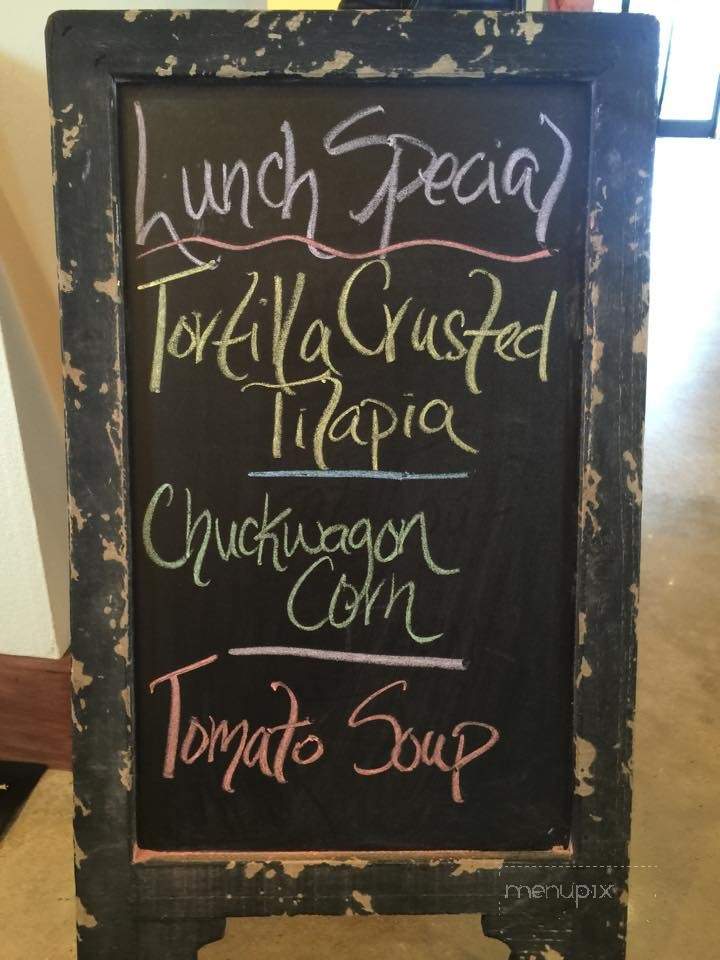 Lunch Special
Tortilla Crusted
Tilapia
Chuckwagon
Corn
Tomato Soup
menupix